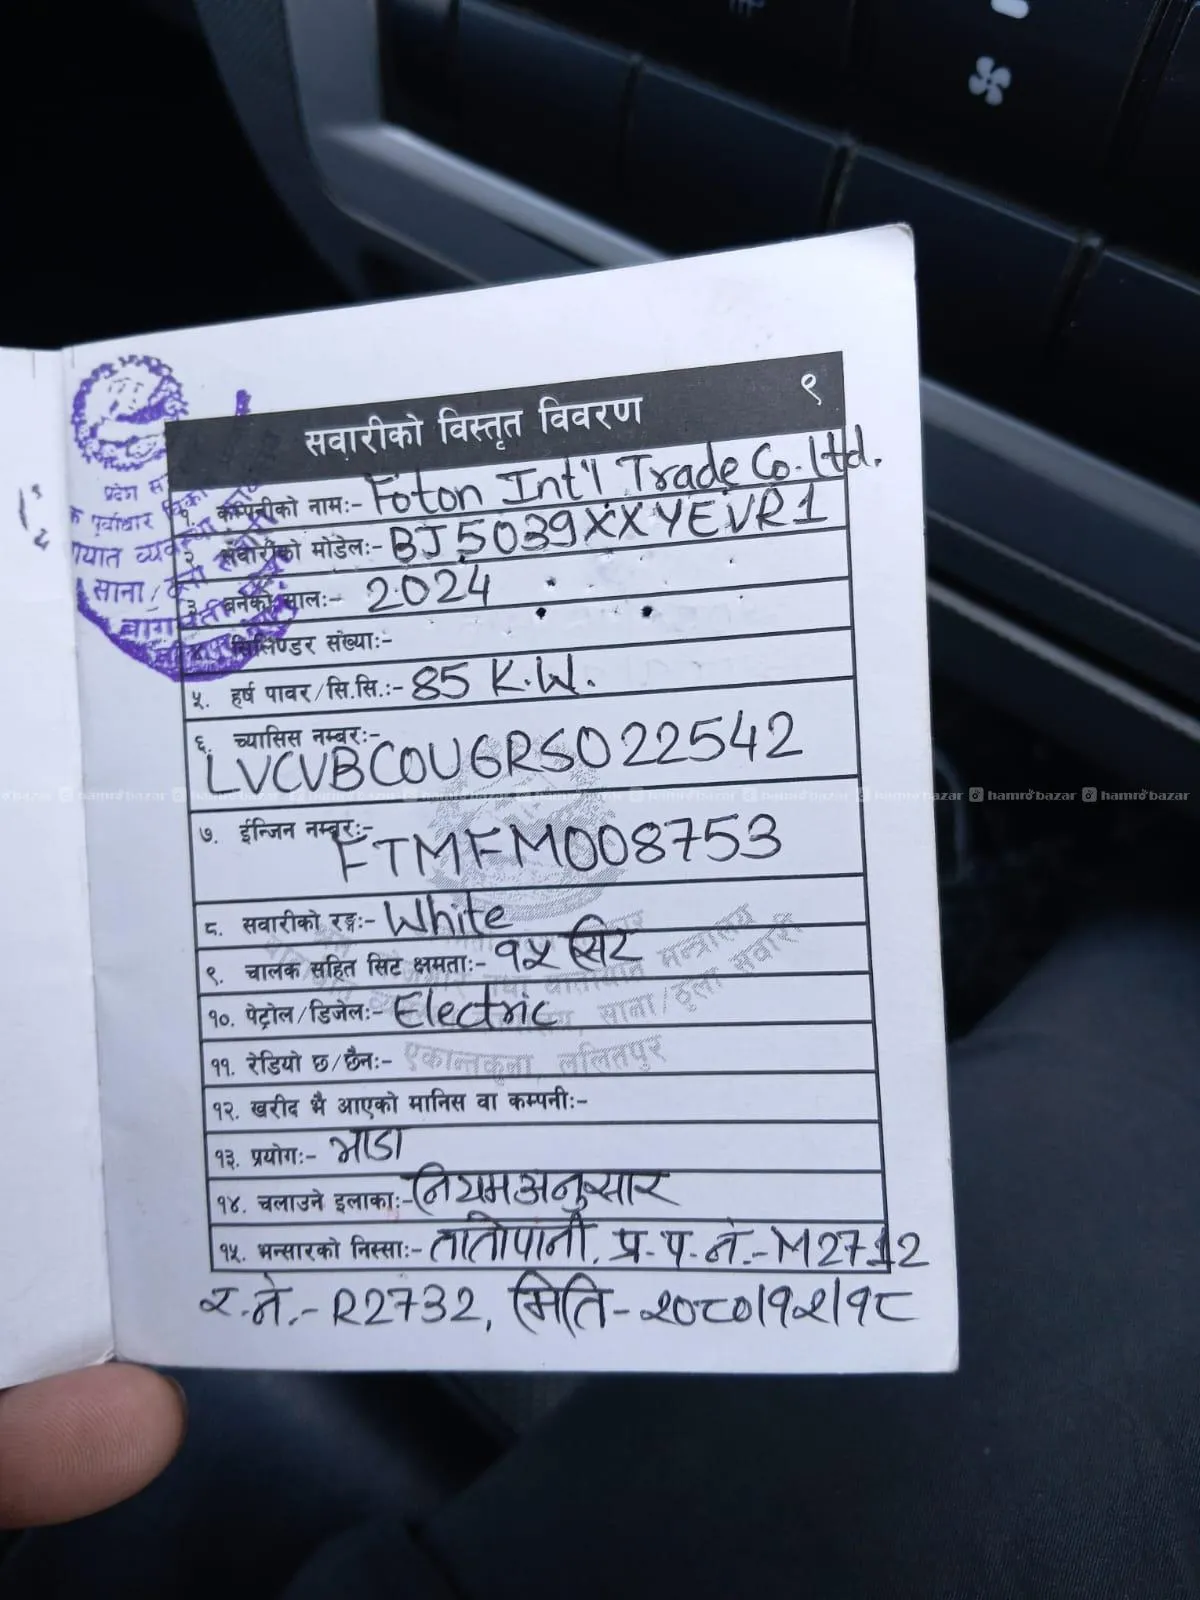 सवारीको विस्तृत विवरण ९
१. कम्पनीको नामः- Foton Int'l Trade Co. ltd.
२. सवारीको मोडेलः- BJ5039XXYEVR1
३. बनेको सालः- 2024
४. सिलिण्डर संख्याः-
५. हर्ष पावर/सि.सि.ः- 85 K.W.
६. च्यासिस नम्बरः-
LVCVBC0U6RS022542
७. ईन्जिन नम्बरः-
FTMFM008753
८. सवारीको रङ्गः- White
९. चालक सहित सिट क्षमताः- १५ सिट
१०. पेट्रोल/डिजेलः- Electric
११. रेडियो छ/छैनः-
एकान्तकुना, ललितपुर
१२. खरीद भै आएको मानिस वा कम्पनीः-
१३. प्रयोगः- भाडा
१४. चलाउने इलाकाः- नियमअनुसार
१५. भन्सारको निस्साः- तातोपानी, प्र.प.नं.- M2712
र.नं.- R2732, मिति- २०८०/१२/१८
hamrobazar